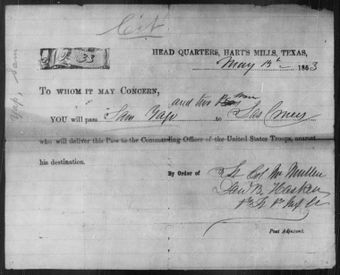 Cit
HEAD QUARTERS, HART'S MILLS, TEXAS,
May 13th 1863
TO WHOM IT MAY CONCERN,
and two men
YOU will pass Sam Yapp to Las Cruces
who will deliver this Pass to the Commanding Officer of the United States Troops, nearest
his destination.
By Order of Lt Col McMullen
1st Lt 1st Inf CV
Post Adjutant.
Yapp, Sam